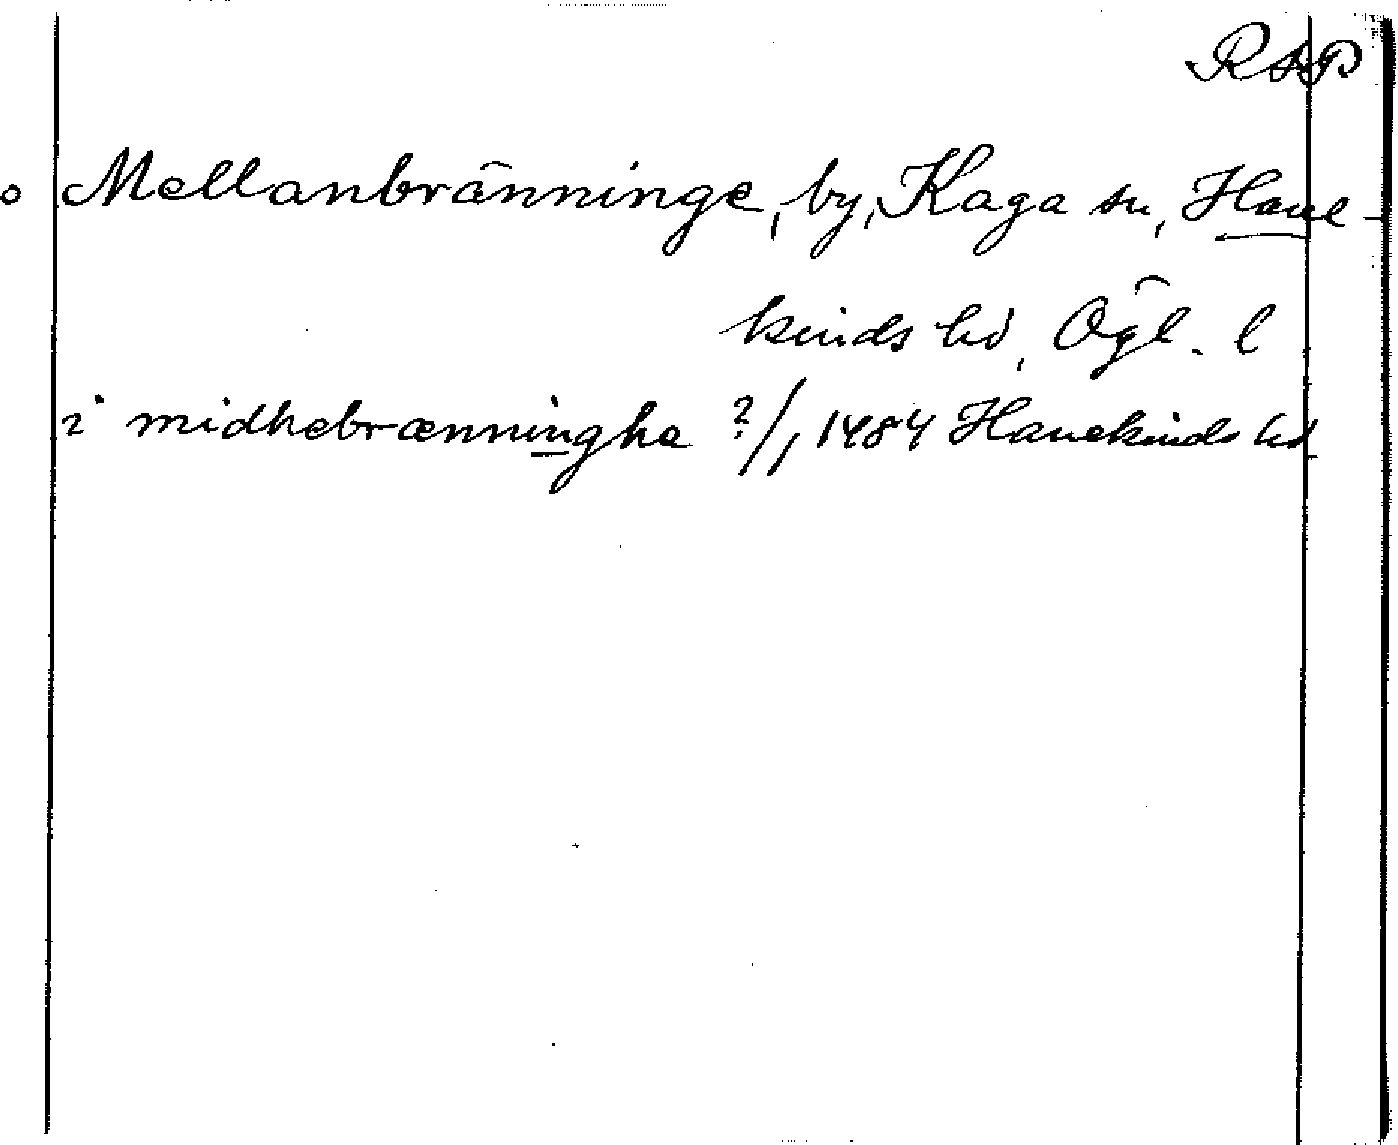 RAP
o Mellanbränninge, by, Kaga sn, Hane-
kinds hd, Ögl. l
i midhebrænninghe ?/, 1484 Hanekinds hd